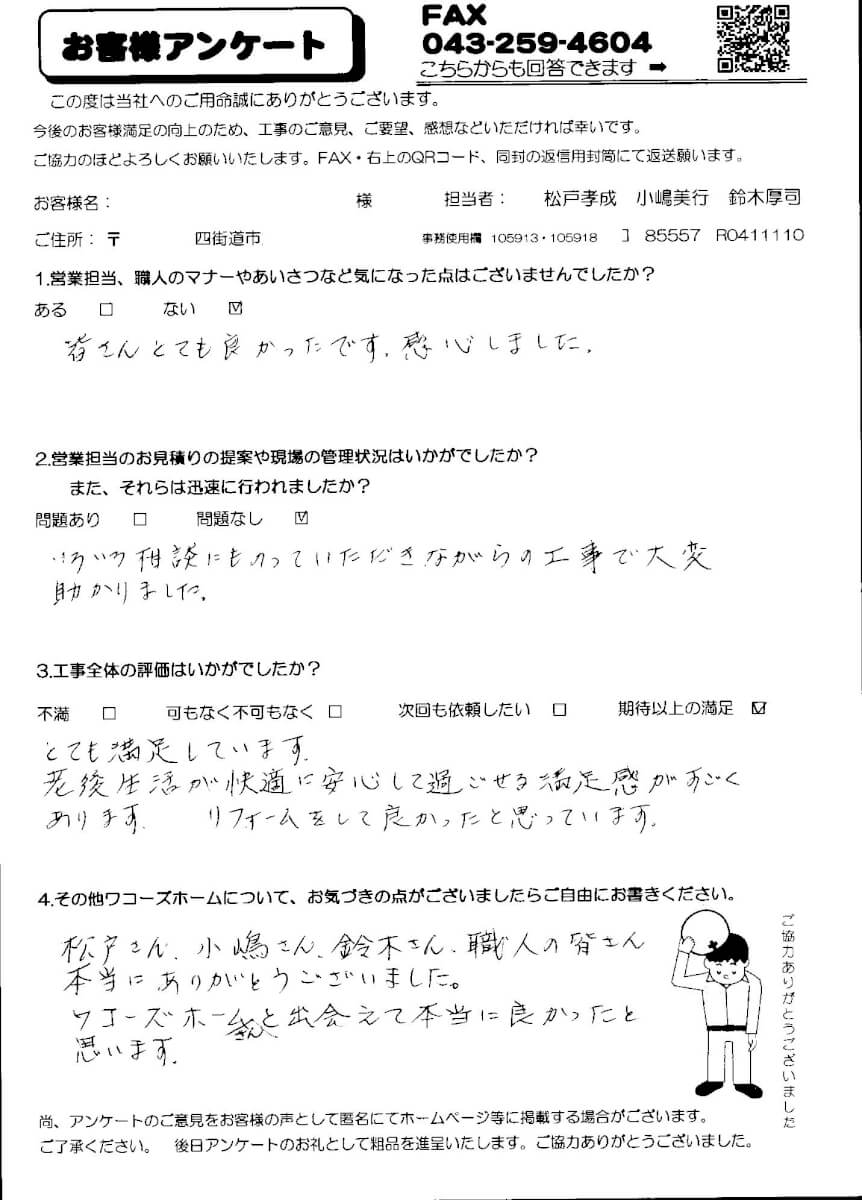 お客様アンケート
FAX
043-259-4604
こちらからも回答できます ➡
この度は当社へのご用命誠にありがとうございます。
今後のお客様満足の向上のため、工事のご意見、ご要望、感想などいただければ幸いです。
ご協力のほどよろしくお願いいたします。FAX・右上のQRコード、同封の返信用封筒にて返送願います。
お客様名： 様 担当者： 松戸孝成 小嶋美行 鈴木厚司
ご住所：〒 四街道市 事務使用欄 105913・105918 ] 85557 R0411110
1.営業担当、職人のマナーやあいさつなど気になった点はございませんでしたか？
ある □ ない ☑
皆さんとても良かったです。感心しました。
2.営業担当のお見積りの提案や現場の管理状況はいかがでしたか？
また、それらは迅速に行われましたか？
問題あり □ 問題なし ☑
いろいろ相談にものっていただきながらの工事で大変
助かりました。
3.工事全体の評価はいかがでしたか？
不満 □ 可もなく不可もなく □ 次回も依頼したい □ 期待以上の満足 ☑
とても満足しています。
老後生活が快適に安心して過ごせる満足感がすごく
あります。 リフォームをして良かったと思っています。
4.その他ワコーズホームについて、お気づきの点がございましたらご自由にお書きください。
松戸さん、小嶋さん、鈴木さん、職人の皆さん
本当にありがとうございました。
ワコーズホームさんと出会えて本当に良かったと
思います。
ご協力ありがとうございました
尚、アンケートのご意見をお客様の声として匿名にてホームページ等に掲載する場合がございます。
ご了承ください。 後日アンケートのお礼として粗品を進呈いたします。ご協力ありがとうございました。